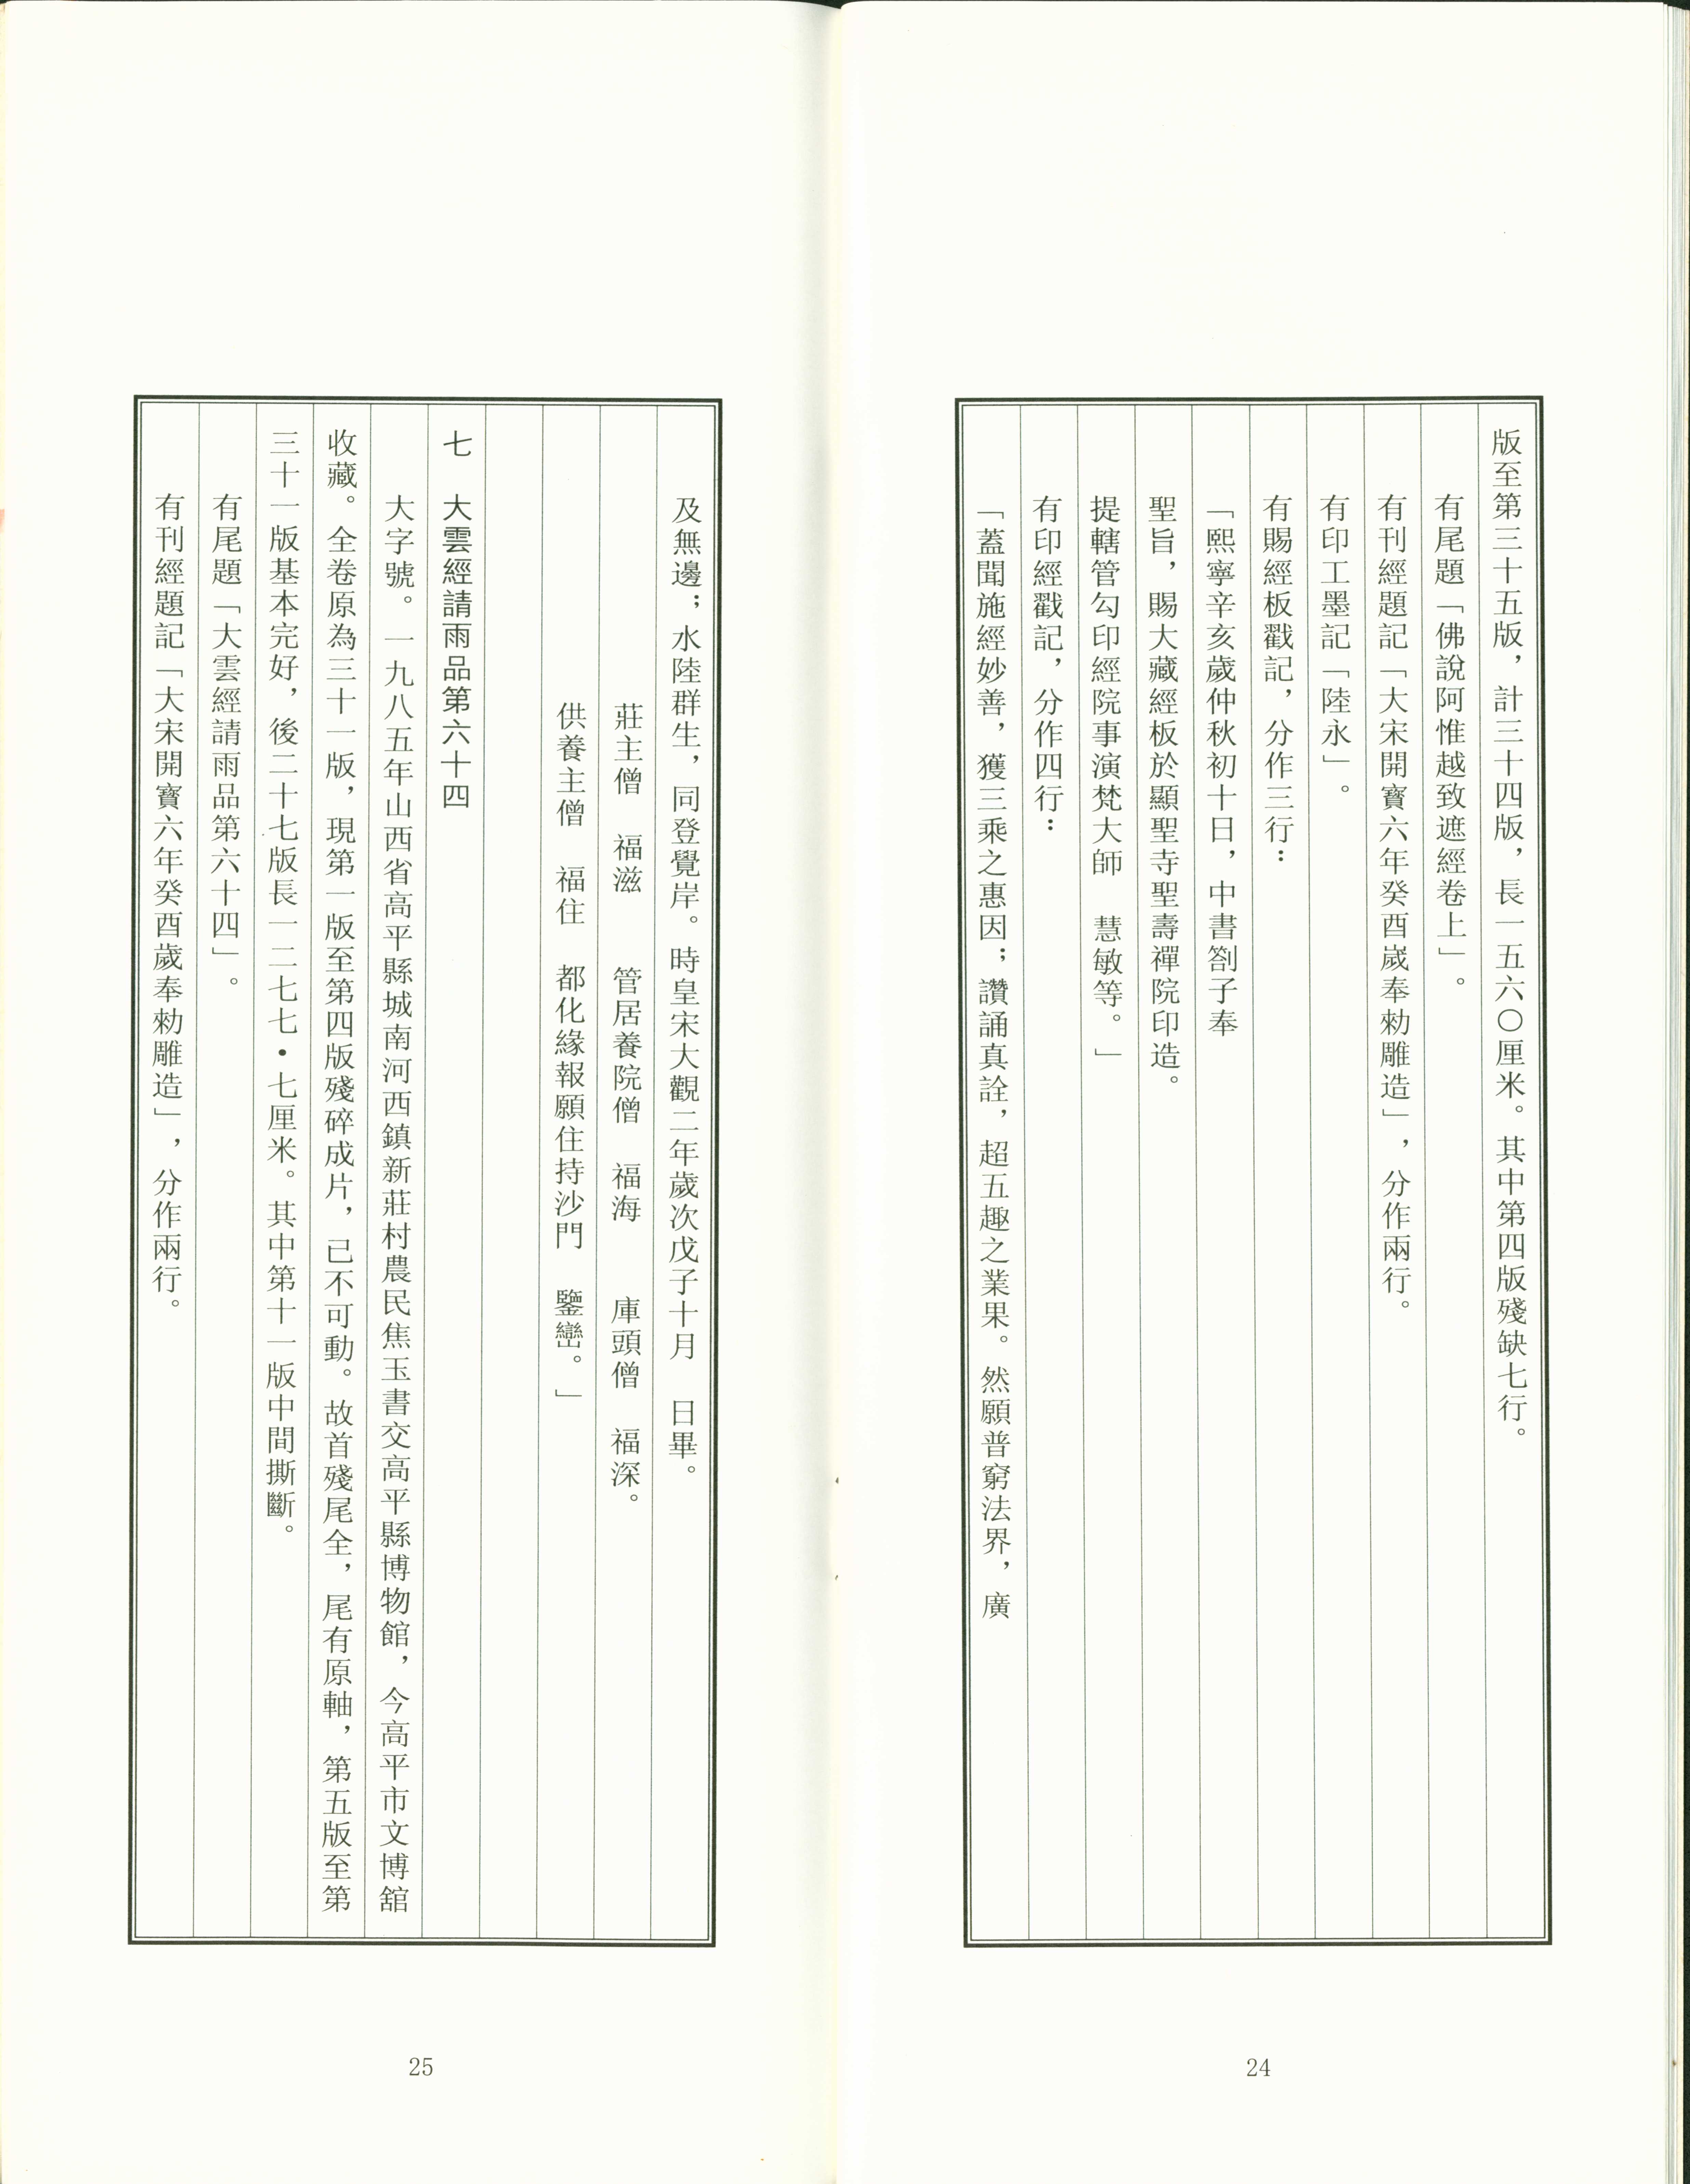 版至第三十五版，計三十四版，長一五六〇厘米。其中第四版殘缺七行。
有尾題「佛說阿惟越致遮經卷上」。
有刊經題記「大宋開寶六年癸酉嵗奉勅雕造」，分作兩行。
有印工墨記「陸永」。
有賜經板戳記，分作三行：
「熙寧辛亥歲仲秋初十日，中書劄子奉
聖旨，賜大藏經板於顯聖寺聖壽禪院印造。
提轄管勾印經院事演梵大師　慧敏等。」
有印經戳記，分作四行：
「蓋聞施經妙善，獲三乘之惠因；讚誦真詮，超五趣之業果。然願普窮法界，廣
24
及無邊；水陸群生，同登覺岸。時皇宋大觀二年歲次戊子十月　日畢。
莊主僧　福滋　　管居養院僧　福海　　庫頭僧　福深。
供養主僧　福住　都化緣報願住持沙門　鑒巒。」
七　大雲經請雨品第六十四
大字號。一九八五年山西省高平縣城南河西鎮新莊村農民焦玉書交高平縣博物館，今高平市文博舘
收藏。全卷原為三十一版，現第一版至第四版殘碎成片，已不可動。故首殘尾全，尾有原軸，第五版至第
三十一版基本完好，後二十七版長一二七七•七厘米。其中第十一版中間撕斷。
有尾題「大雲經請雨品第六十四」。
有刊經題記「大宋開寶六年癸酉歲奉勅雕造」，分作兩行。
25